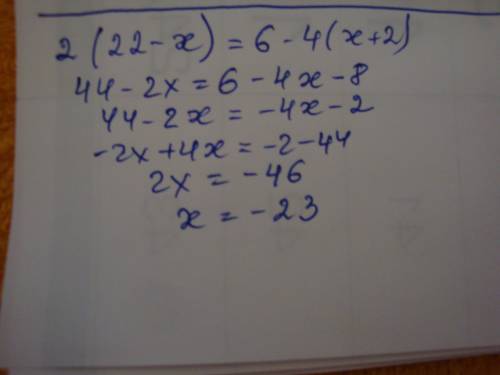 2 (22 - x) = 6 - 4(x+2)
44 - 2x = 6 - 4x - 8
44 - 2x = -4x - 2
-2x + 4x = -2 - 44
2x = -46
x = -23